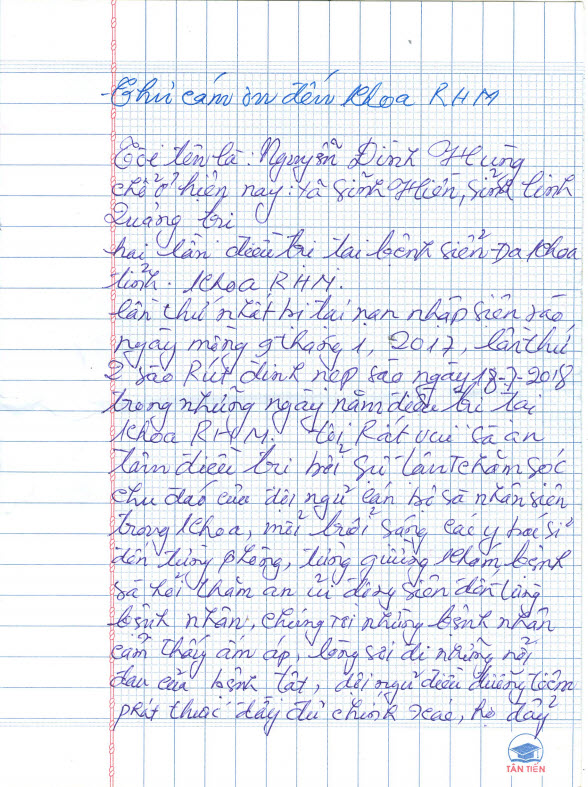 Thư cám ơn đến khoa RHM
Tôi tên là: Nguyễn Đình Hùng
chổ ở hiện nay: xã Sĩnh Hiền, Sĩnh linh
Quảng trị
hai lần điều trị tại bệnh siển Đa khoa
tỉnh. khoa RHM.
lần thứ nhất bị tai nạn nhập siện sào
ngày mồng 9 tháng 1, 2017, lần thứ
2 sào Rút đinh nẹp sào ngày 18-7-2018
trong những ngày nằm điều trị tại
khoa RHM. tôi Rất vui sà an
tâm điều trị bởi sự tận chăm sóc
chu đáo của đội ngữ cán bộ sà nhân siên
trong khoa, mỗi buổi sáng các y bác sĩ
đến từng phòng, từng giường khám bệnh
sà hỏi thăm an ủi động siên đến từng
bệnh nhân, chúng tôi những bệnh nhân
cảm thấy ấm áp, lòng sơi đi những nỗi
đau của bệnh tật, đội ngữ điều dưỡng tiêm
phát thuốc đầy đủ chính xác, họ đầy
TÂN TIẾN